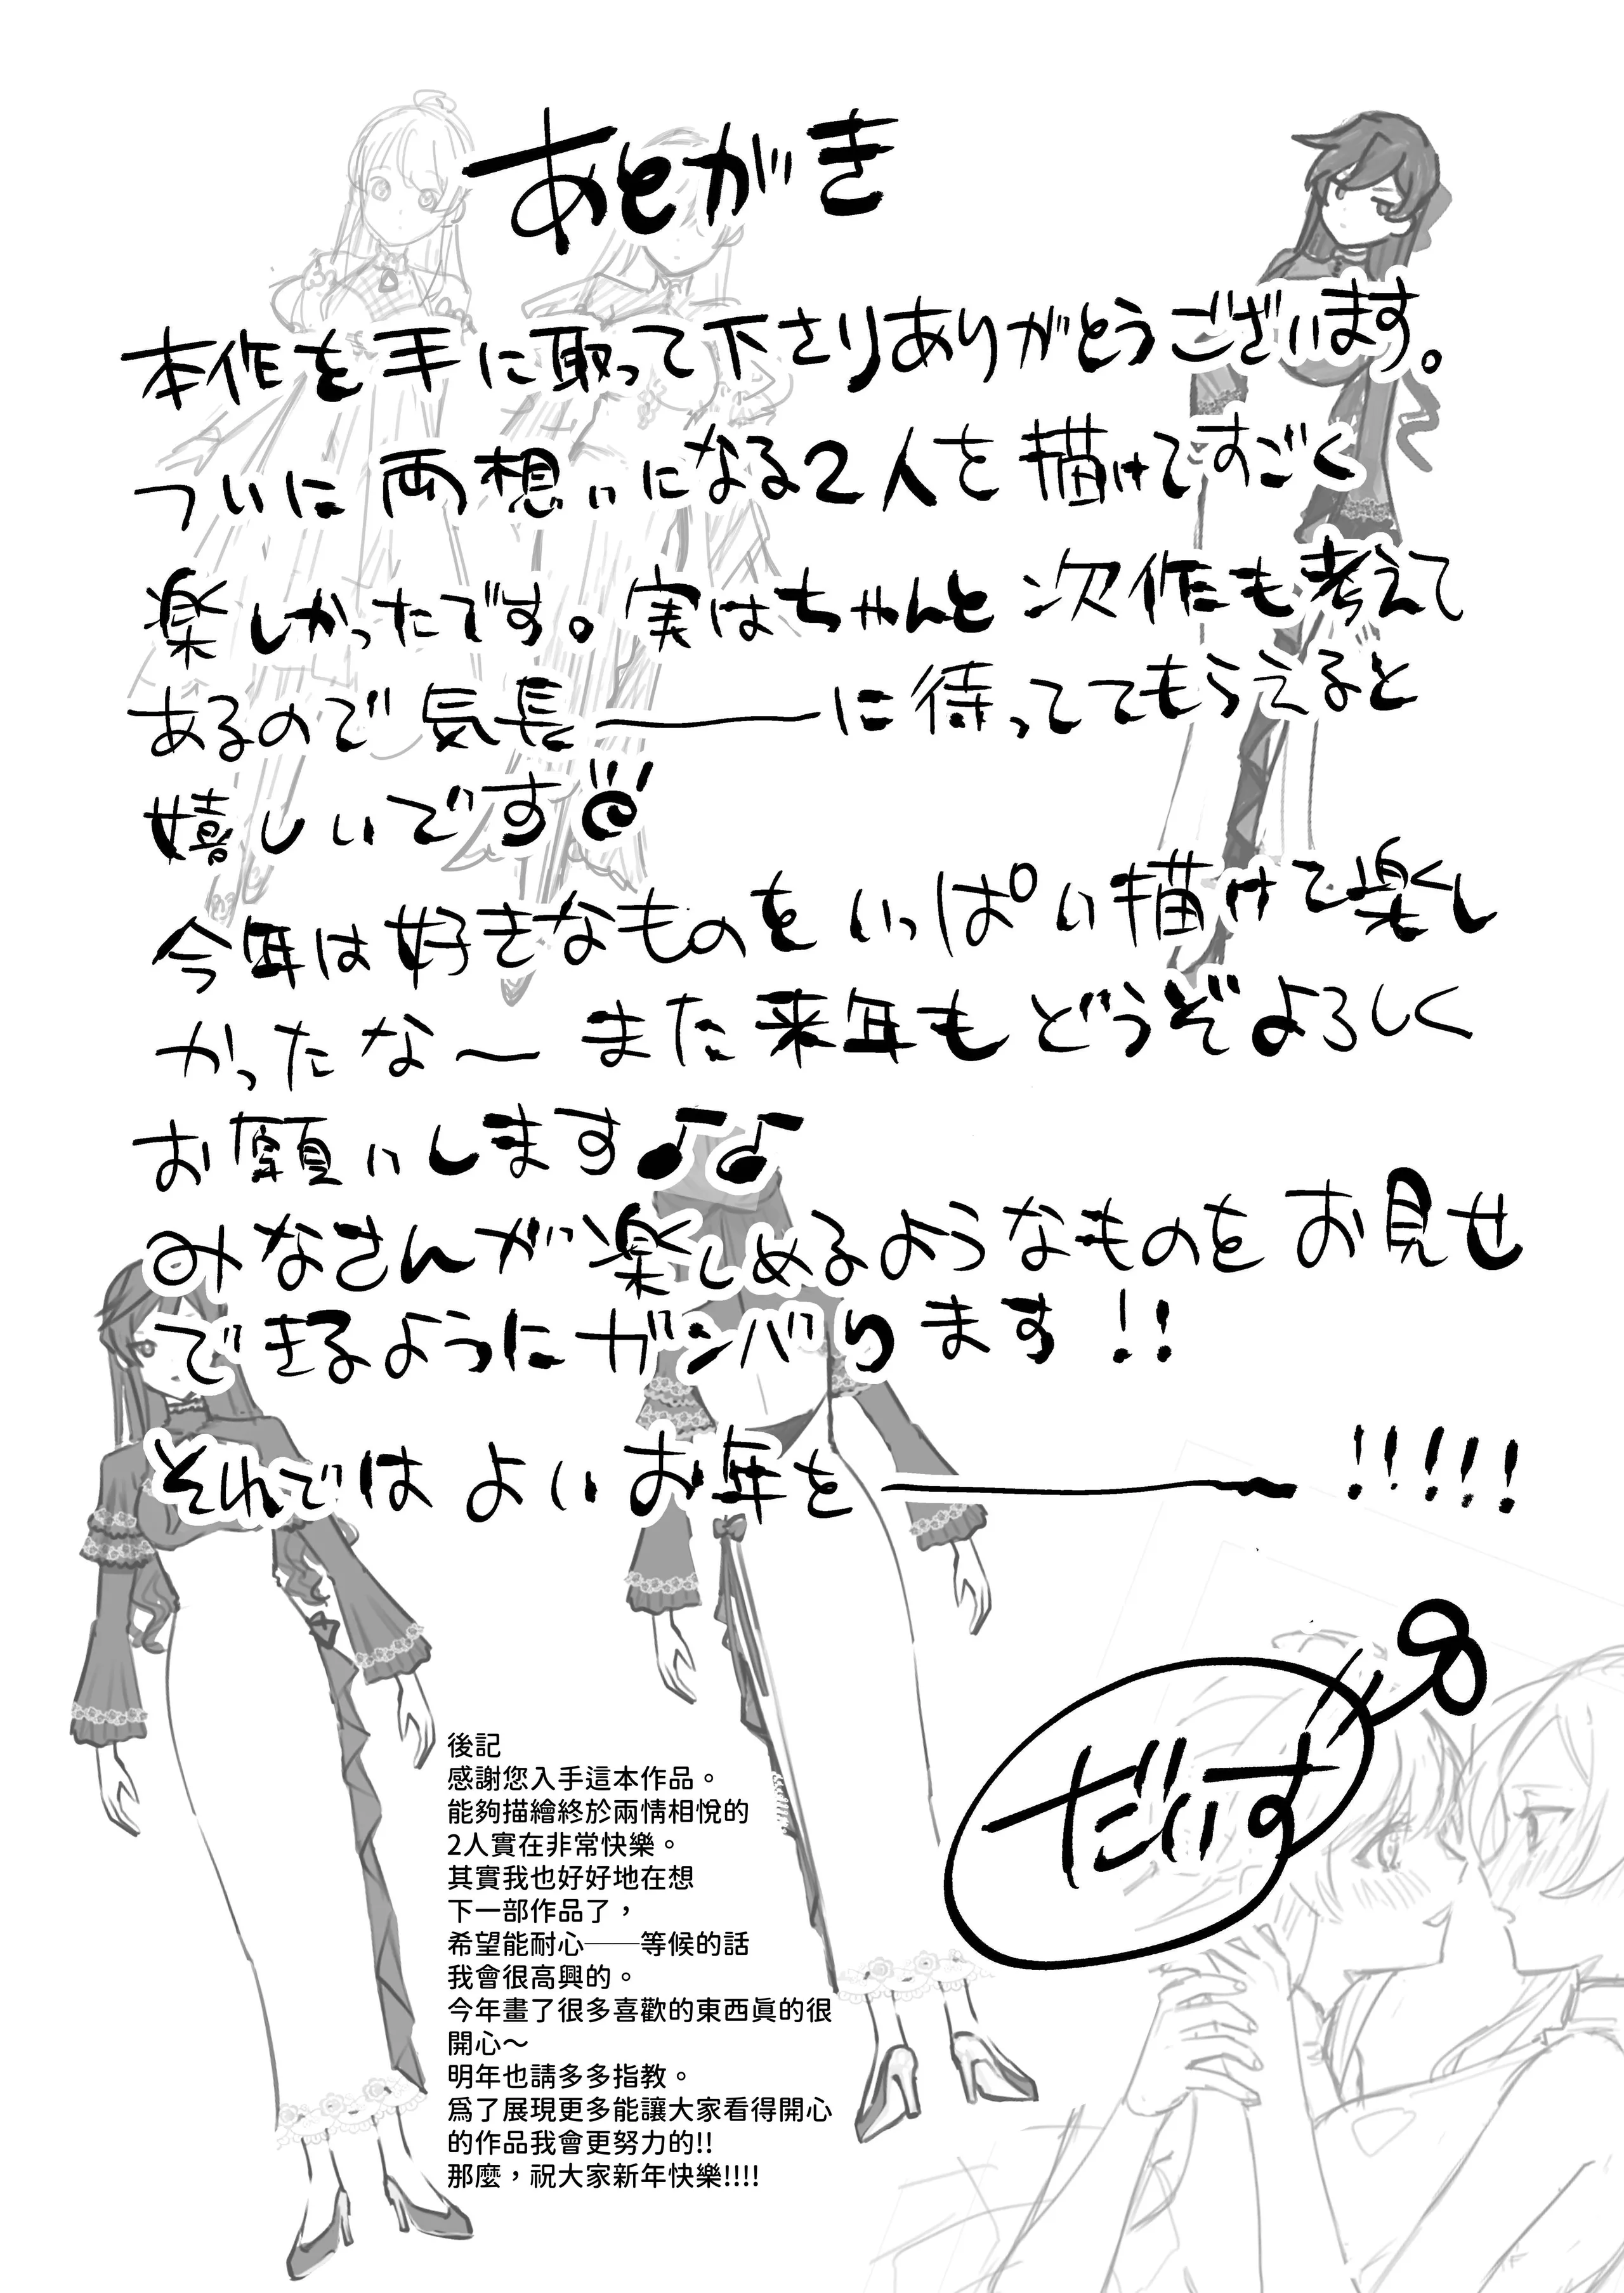 あとがき
本作を手に取って下さりありがとうございます。
ついに両想いになる2人を描けてすごく
楽しかったです。実はちゃんと次作も考えて
あるので気長――に待っててもらえると
嬉しいです
今年は好きなものをいっぱい描けて楽し
かったな〜また来年もどうぞよろしく
お願いします♪♪
みなさんが楽しめるようなものをお見せ
できるようにガンバります!!
それではよいお年を――!!!!!
だいす
後記
感謝您入手這本作品。
能夠描繪終於兩情相悅的
2人實在非常快樂。
其實我也好好地在想
下一部作品了，
希望能耐心──等候的話
我會很高興的。
今年畫了很多喜歡的東西眞的很
開心～
明年也請多多指教。
爲了展現更多能讓大家看得開心
的作品我會更努力的!!
那麼，祝大家新年快樂!!!!